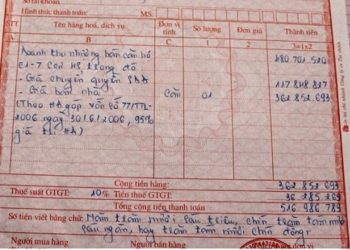 Số tài khoản
Hình thức thanh toán: MS:
STT Tên hàng hoá, dịch vụ Đơn vị tính Số lượng Đơn giá Thành tiền
A B C 1 2 3=1x2
Doanh thu nhượng bán căn hộ 480.701.520
E1-7 Co2 HS
- Giá chuyển quyền SDĐ 117.848.827
- Giá bán nhà Căn 01 362.852.693
(Theo HĐ góp vốn số 77/TTL-
2006 ngày 30/6/2006, 95%
giá trị HĐ)
Cộng tiền hàng: 362.852.693
Thuế suất GTGT: 10% Tiền thuế GTGT: 36.285.269
Tổng cộng tiền thanh toán 516.986.789
Số tiền viết bằng chữ: Năm trăm mười sáu triệu, chín trăm tám mươi
sáu ngàn, bảy trăm tám mươi chín đồng.
Người mua hàng Người bán hàng